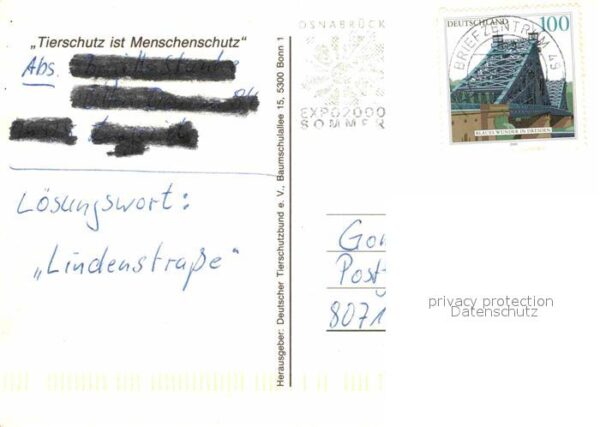 „Tierschutz ist Menschenschutz“
Abs.
Lösungswort:
„Lindenstraße“
Herausgeber: Deutscher Tierschutzbund e. V., Baumschulallee 15, 5300 Bonn 1
OSNABRÜCK
EXPO2000
SOMMER
DEUTSCHLAND 100
BRIEFZENTRUM 49
BLAUES WUNDER IN DRESDEN
2000
Gon
Post
8071
privacy protection
Datenschutz